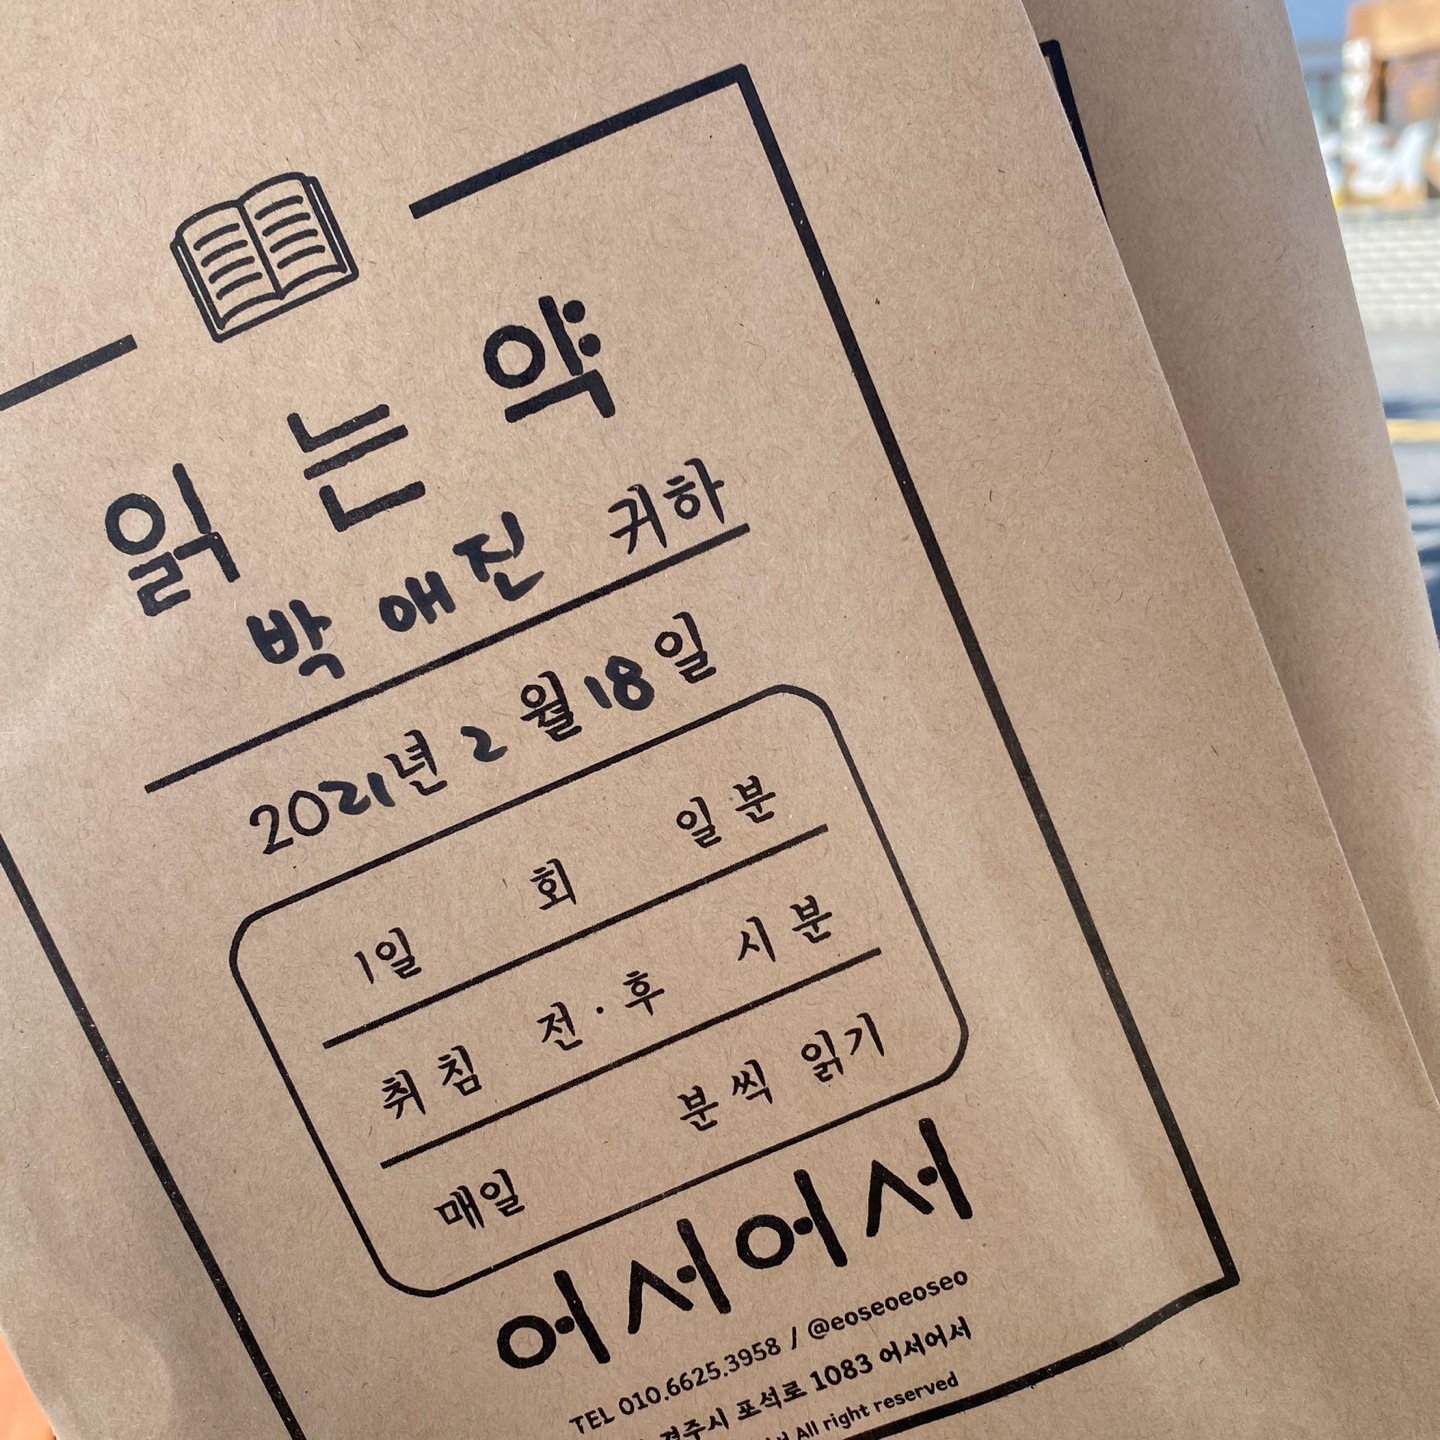 읽는 약
박애진 귀하
2021년 2월 18일
1일 회 일분
취침 전·후 시 분
매일 분씩 읽기
어서어서
TEL 010.6625.3958 / @eoseoeoseo
경주시 포석로 1083 어서어서
All right reserved